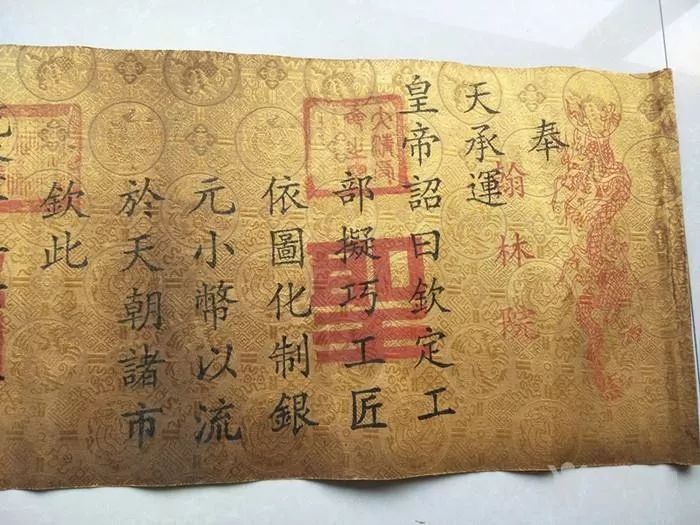 奉
翰林院
天承運
皇帝詔曰欽定工
聖
部擬巧工匠
依圖化制銀
元小幣以流
於天朝諸市
欽此